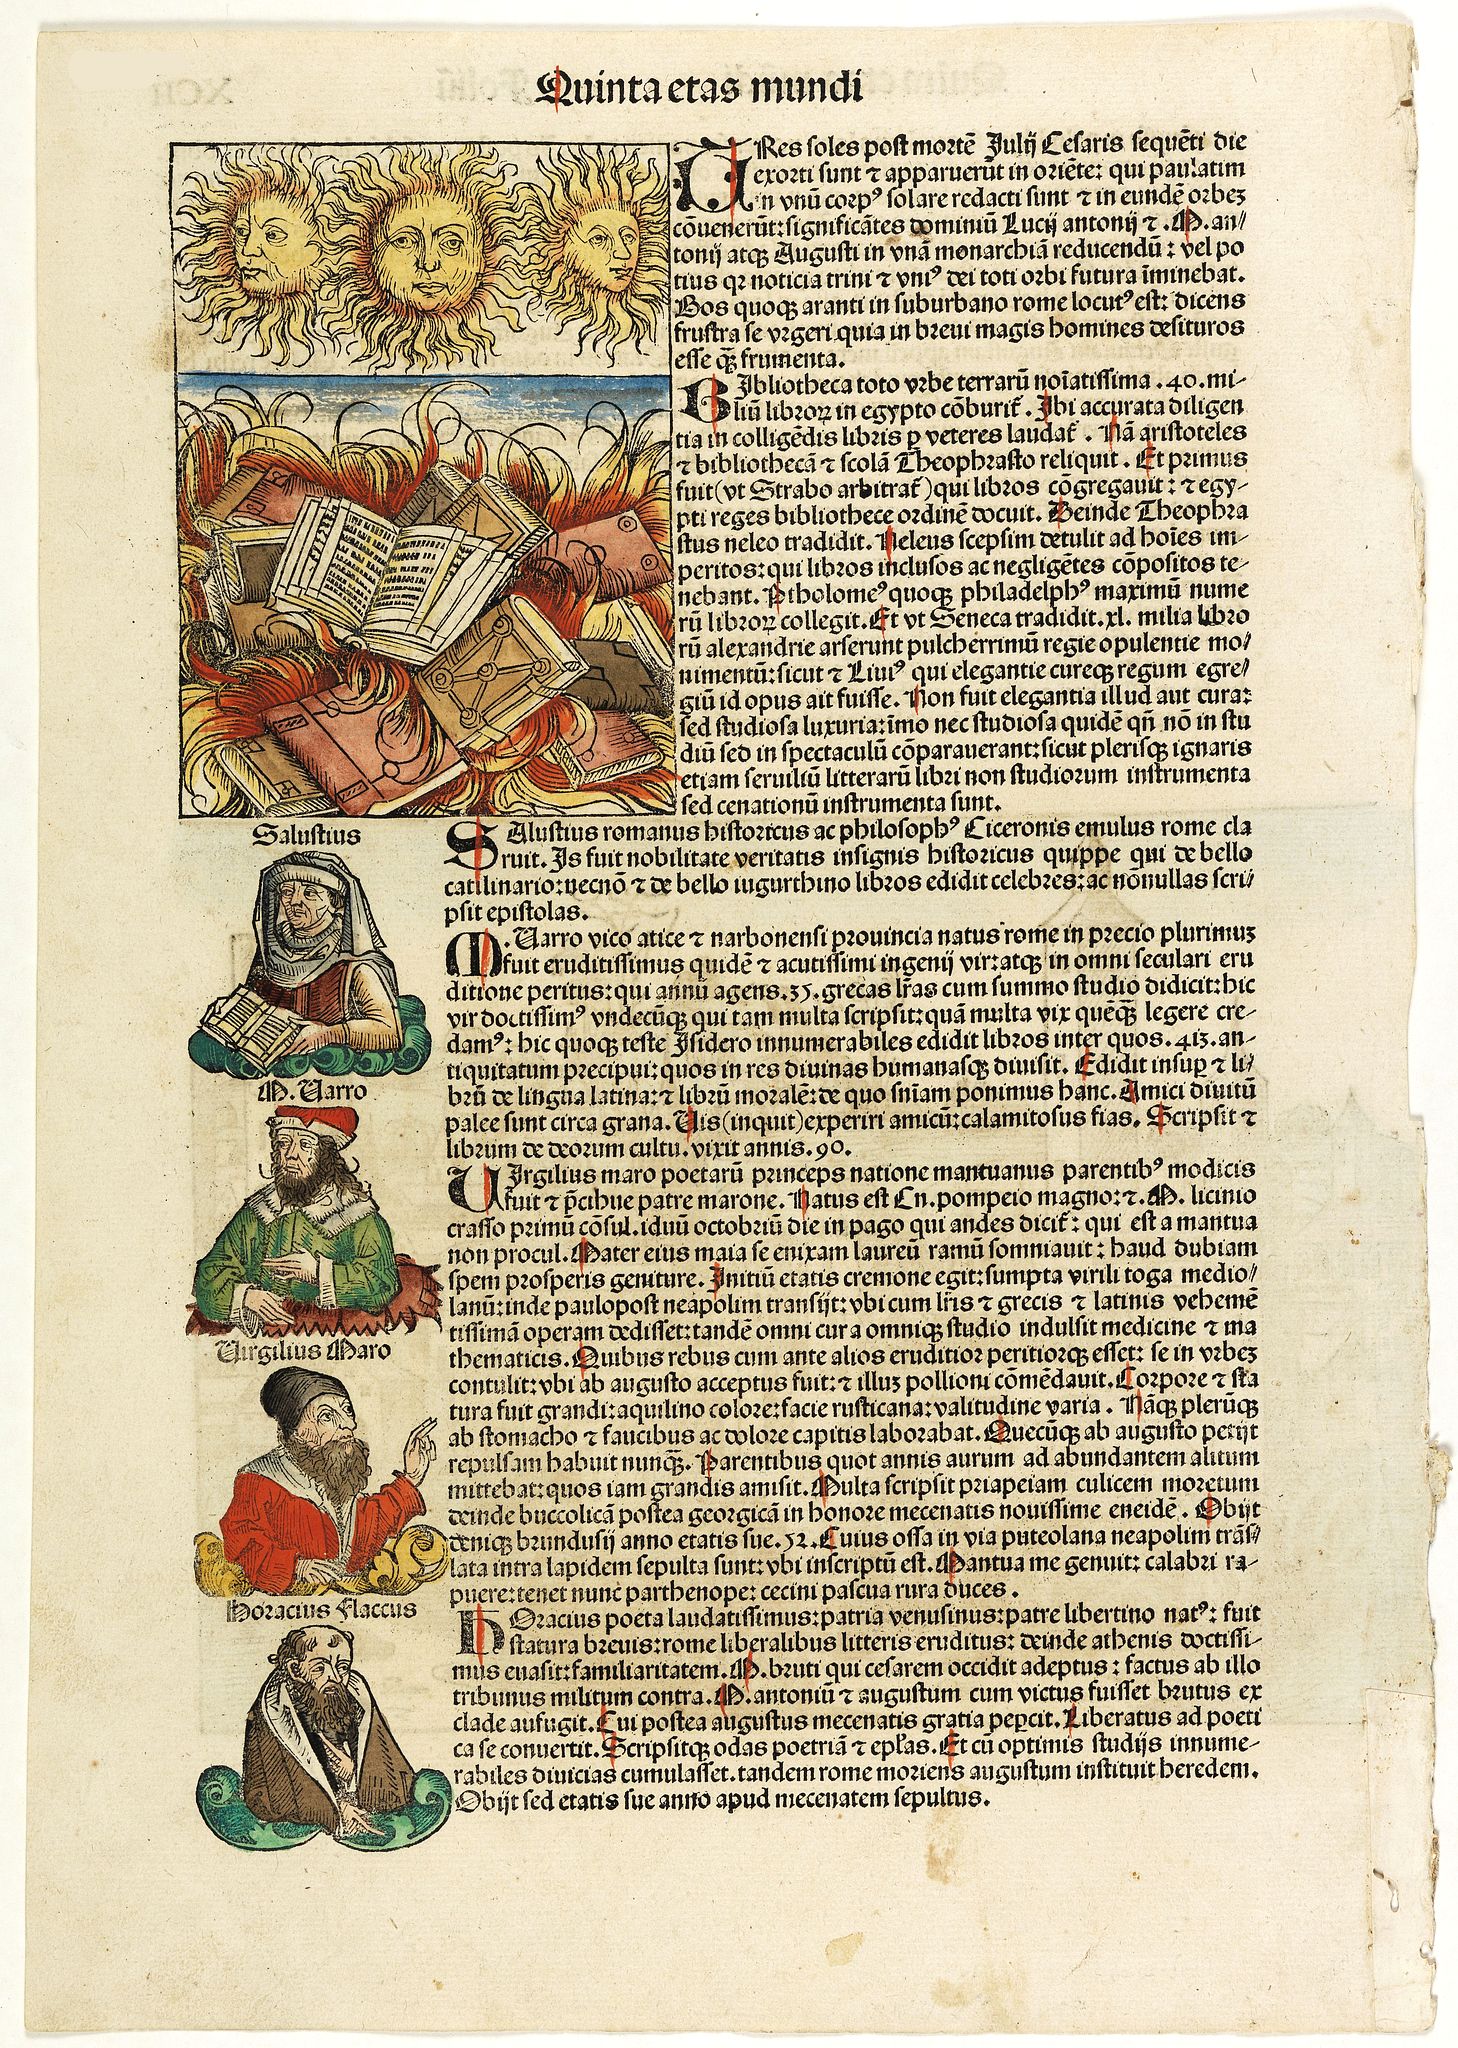 Quinta etas mundi
TRes soles post mortē Julij Cesaris sequēti die
exorti sunt ⁊ apparuerūt in oriēte: qui paulatim
in vnū corpꝰ solare redacti sunt ⁊ in eundē orbeꝫ
cōuenerūt: significātes dominiū Lucij antonij ⁊ .M. an//
tonij atqꝫ Augusti in vnā monarchiā reducendū: vel po
tius qꝛ noticia trini ⁊ vniꝰ dei toti orbi futura īminebat.
Bos quoqꝫ aranti in suburbano rome locutꝰ est: dicens
frustra se vrgeri quia in breui magis homines desituros
esse qꝫ̄ frumenta.
BIbliotheca toto vrbe terrarū noīatissima .40. mi-
liū libroꝝ in egypto cōburit̄. Ibi accurata diligen
tia in colligēdis libris ꝑ veteres laudat̄. Nā aristoteles
⁊ bibliothecā ⁊ scolā Theophrasto reliquit. Et primus
fuit (vt Strabo arbitrat̄) qui libros cōgregauit: ⁊ egy-
pti reges bibliothece ordinē docuit. Deinde Theophra
stus neleo tradidit. Neleus scepsim detulit ad hoīes im-
peritos: qui libros inclusos ac negligētes cōpositos te-
nebant. Ptholomeꝰ quoqꝫ philadelphꝰ maximū nume
rū libroꝝ collegit. Et vt Seneca tradidit. xl. milia libro
rū alexandrie arserunt pulcherrimū regie opulentie mo//
nimentū: sicut ⁊ Liuiꝰ qui elegantie cureqꝫ regum egre//
giū id opus ait fuisse. Non fuit elegantia illud aut cura:
sed studiosa luxuria: īmo nec studiosa quidē qn̄ nō in stu
diū sed in spectaculū cōparauerant: sicut plerisqꝫ ignaris
etiam seruiliū litterarū libri non studiorum instrumenta
sed cenationū instrumenta sunt.
Salustius
SAlustius romanus historicus ac philosophꝰ Ciceronis emulus rome cla
ruit. Is fuit nobilitate veritatis insignis historicus quippe qui de bello
catilinario: necnō ⁊ de bello iugurthino libros edidit celebres: ac nōnullas scri//
psit epistolas.
M. Varro
M. Varro vico atice ⁊ narbonensi prouincia natus rome in precio plurimuꝫ
fuit eruditissimus quidē ⁊ acutissimi ingenij vir: atqꝫ in omni seculari eru
ditione peritus: qui annū agens .35. grecas lr̄as cum summo studio didicit: hic
vir doctissimꝰ vndecūqꝫ qui tam multa scripsit: quā multa vix quēqꝫ̄ legere cre-
damꝰ: hic quoqꝫ teste Isidero innumerabiles edidit libros inter quos .413. an-
tiquitatum precipui: quos in res diuinas humanasqꝫ diuisit. Edidit insuꝑ ⁊ li-
brū de lingua latina: ⁊ librū moralē: de quo sn̄iam ponimus hanc. Amici diuitū
palee sunt circa grana. Uis (inquit) experiri amicū: calamitosus fias. Scripsit ⁊
librum de deorum cultu. vixit annis .90.
Virgilius Maro
VIrgilius maro poetarū princeps natione mantuanus parentibꝰ modicis
fuit ⁊ p̄cibue patre marone. Natus est Cn. pompeio magno: ⁊ .M. licinio
crasso primū cōsul. iduū octobriū die in pago qui andes dicit̄: qui est a mantua
non procul. Mater eius maia se enixam laureū ramū somniauit: haud dubiam
spem prosperis geniture. Initiū etatis cremone egit: sumpta virili toga medio//
lanū: inde paulopost neapolim transijt: vbi cum lr̄is ⁊ grecis ⁊ latinis vehemē
tissimā operam dedisset: tandē omni cura omniqꝫ studio indulsit medicine ⁊ ma
thematicis. Quibus rebus cum ante alios eruditior peritiorqꝫ esset: se in vrbeꝫ
contulit: vbi ab augusto acceptus fuit: ⁊ illuꝫ pollioni cōmēdauit. Corpore ⁊ sta
tura fuit grandi: aquilino colore: facie rusticana: valitudine varia. Nāqꝫ plerūqꝫ
ab stomacho ⁊ faucibus ac dolore capitis laborabat. Quecūqꝫ ab augusto petijt
repulsam habuit nunqꝫ̄. Parentibus quot annis aurum ad abundantem alitum
mittebat: quos iam grandis amisit. Multa scripsit priapeiam culicem moretum
deinde buccolicā postea georgicā in honore mecenatis nouissime eneidē. Obijt
deniqꝫ brundusij anno etatis sue .52. Cuius ossa in via puteolana neapolim trās//
lata intra lapidem sepulta sunt: vbi inscriptū est. Mantua me genuit: calabri ra-
puere: tenet nunc parthenope: cecini pascua rura duces.
Horacius Flaccus
HOracius poeta laudatissimus: patria venusinus: patre libertino natꝰ: fuit
statura breuis: rome liberalibus litteris eruditus: deinde athenis doctissi-
mus euasit: familiaritatem .M. bruti qui cesarem occidit adeptus: factus ab illo
tribunus militum contra .M. antoniū ⁊ augustum cum victus fuisset brutus ex
clade aufugit. Cui postea augustus mecenatis gratia peꝑcit. Liberatus ad poeti
ca se conuertit. Scripsitqꝫ odas poetriā ⁊ epl̄as. Et cū optimis studijs innume-
rabiles diuicias cumulasset. tandem rome moriens augustum instituit heredem.
Obijt sed etatis sue anno apud mecenatem sepultus.